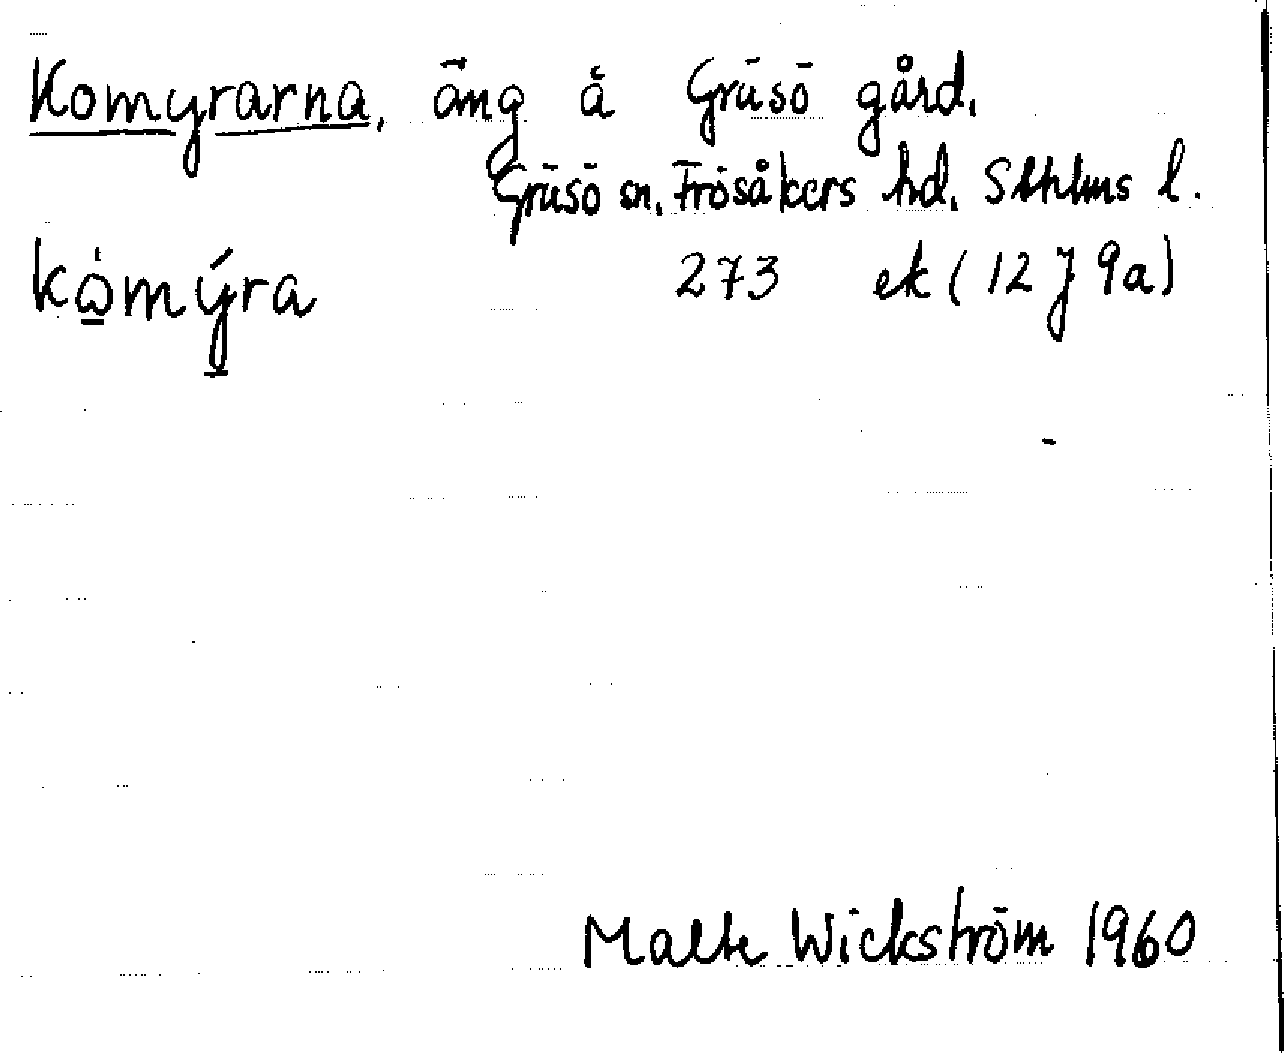 Komyrarna, äng å Gräsö gård.
Gräsö sn. Frösåkers hd. Sthlms l.
kòmýra 273 ek (12 J 9a)
Malte Wickström 1960